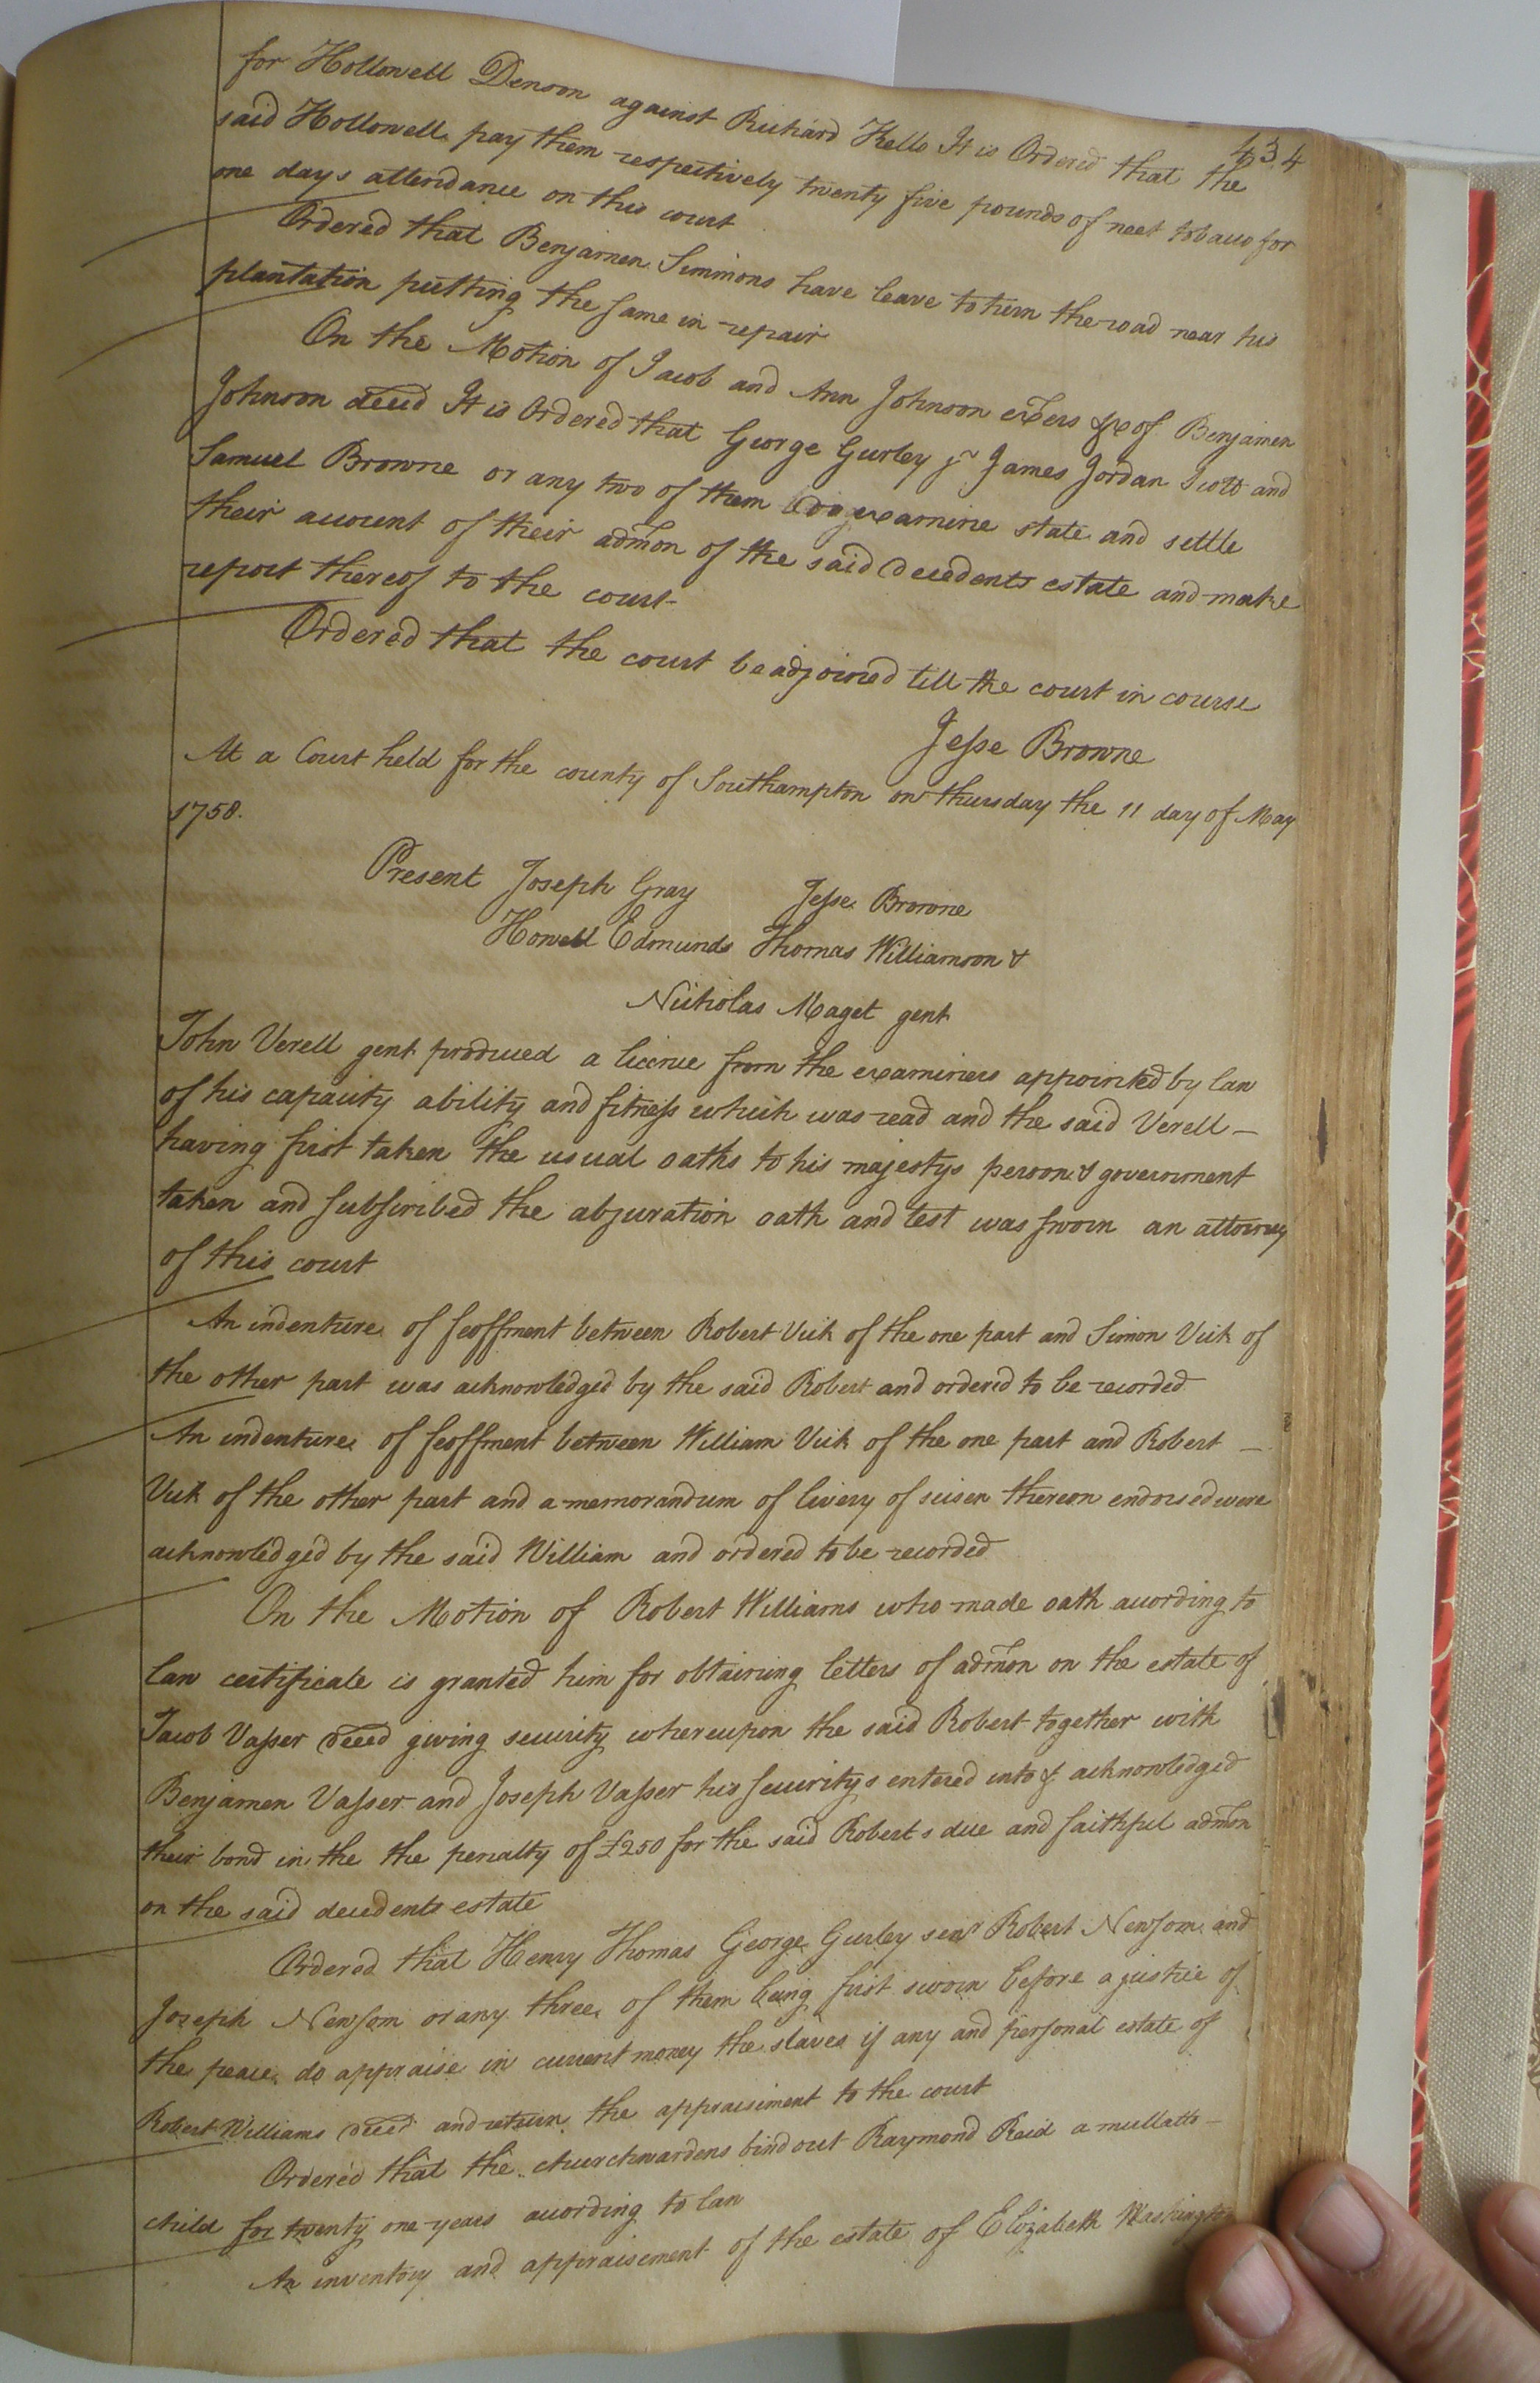 434
for Hollowell Denson against Richard Kello It is Ordered that the
said Hollowell pay them respectively twenty five pounds of neet tobacco for
one days attendance on this court
Ordered that Benjamen Simmons have leave to turn the road near his
plantation putting the same in repair
On the Motion of Jacob and Ann Johnson exŏers &c of Benjamen
Johnson deced It is Ordered that George Gurley jr James Jordan Scott and
Samuel Browne or any two of them do examine state and settle
their account of their admon of the said decedents estate and make
report thereof to the court
Ordered that the court be adjoined till the court in course
Jesse Browne
At a Court held for the county of Southampton on thursday the 11 day of May
1758.
Present Joseph Gray Jesse Browne
Howell Edmunds Thomas Williamson &
Nicholas Maget gent
John Verell gent produced a licence from the examiners appointed by law
of his capacity ability and fitness which was read and the said Verell –
having first taken the usual oaths to his majestys person & government
taken and subscribed the abjuration oath and test was sworn an attorney
of this court
An indenture of feoffment between Robert Vick of the one part and Simon Vick of
the other part was acknowledged by the said Robert and ordered to be recorded
An indenture of feoffment between William Vick of the one part and Robert –
Vick of the other part and a memorandum of livery of seisen thereon endorsed were
acknowledged by the said William and ordered to be recorded
On the Motion of Robert Williams who made oath according to
law certificate is granted him for obtaining letters of admon on the estate of
Jacob Vasser deced giving security whereupon the said Robert together with
Benjamen Vasser and Joseph Vasser his securitys entered into & acknowledged
their bond in the the penalty of £250 for the said Roberts due and faithful admon
on the said decedents estate
Ordered that Henry Thomas George Gurley senr Robert Newsom and
Joseph Newsom or any three of them being first sworn before a justice of
the peace do appraise in current money the slaves if any and personal estate of
Robert Williams deced and return the appraisiment to the court
Ordered that the churchwardens bind out Raymond Reid a mullatto –
child for twenty one years according to law
An inventory and appraisement of the estate of Elizabeth Washington